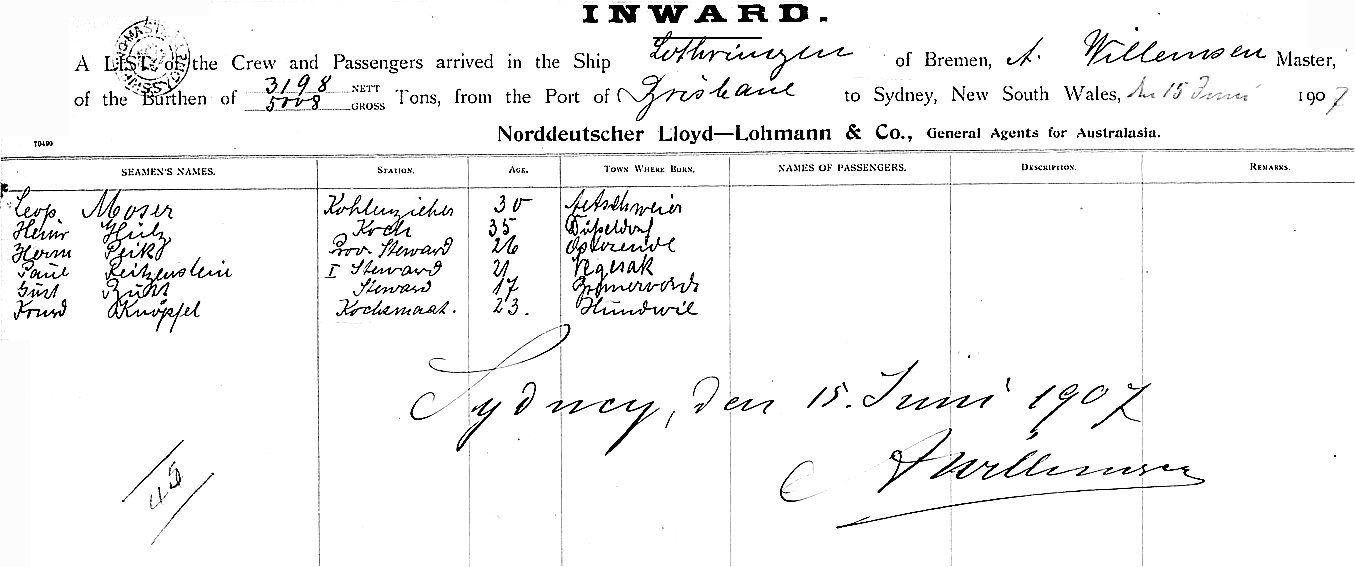 INWARD.
A LIST of the Crew and Passengers arrived in the Ship Lothringen of Bremen, A. Willemsen Master,
of the Burthen of 3198 NETT 5008 GROSS Tons, from the Port of Brisbane to Sydney, New South Wales, den 15 Juni 1907
Norddeutscher Lloyd—Lohmann & Co., General Agents for Australasia.
70490
SEAMEN'S NAMES. STATION. AGE. TOWN WHERE BORN. NAMES OF PASSENGERS. DESCRIPTION. REMARKS.
Leop. Moser Kohlenzieher 30
Heinr Koch 35 Düsseldorf
Herm Peiks Prov. Steward 26
Paul Reitzenstein I Steward 21 Vegesak
Gust Steward 17
Knöpfel Kochsmaat. 23. Hundwil
Sydney, den 15. Juni 1907
AWillemsen
45